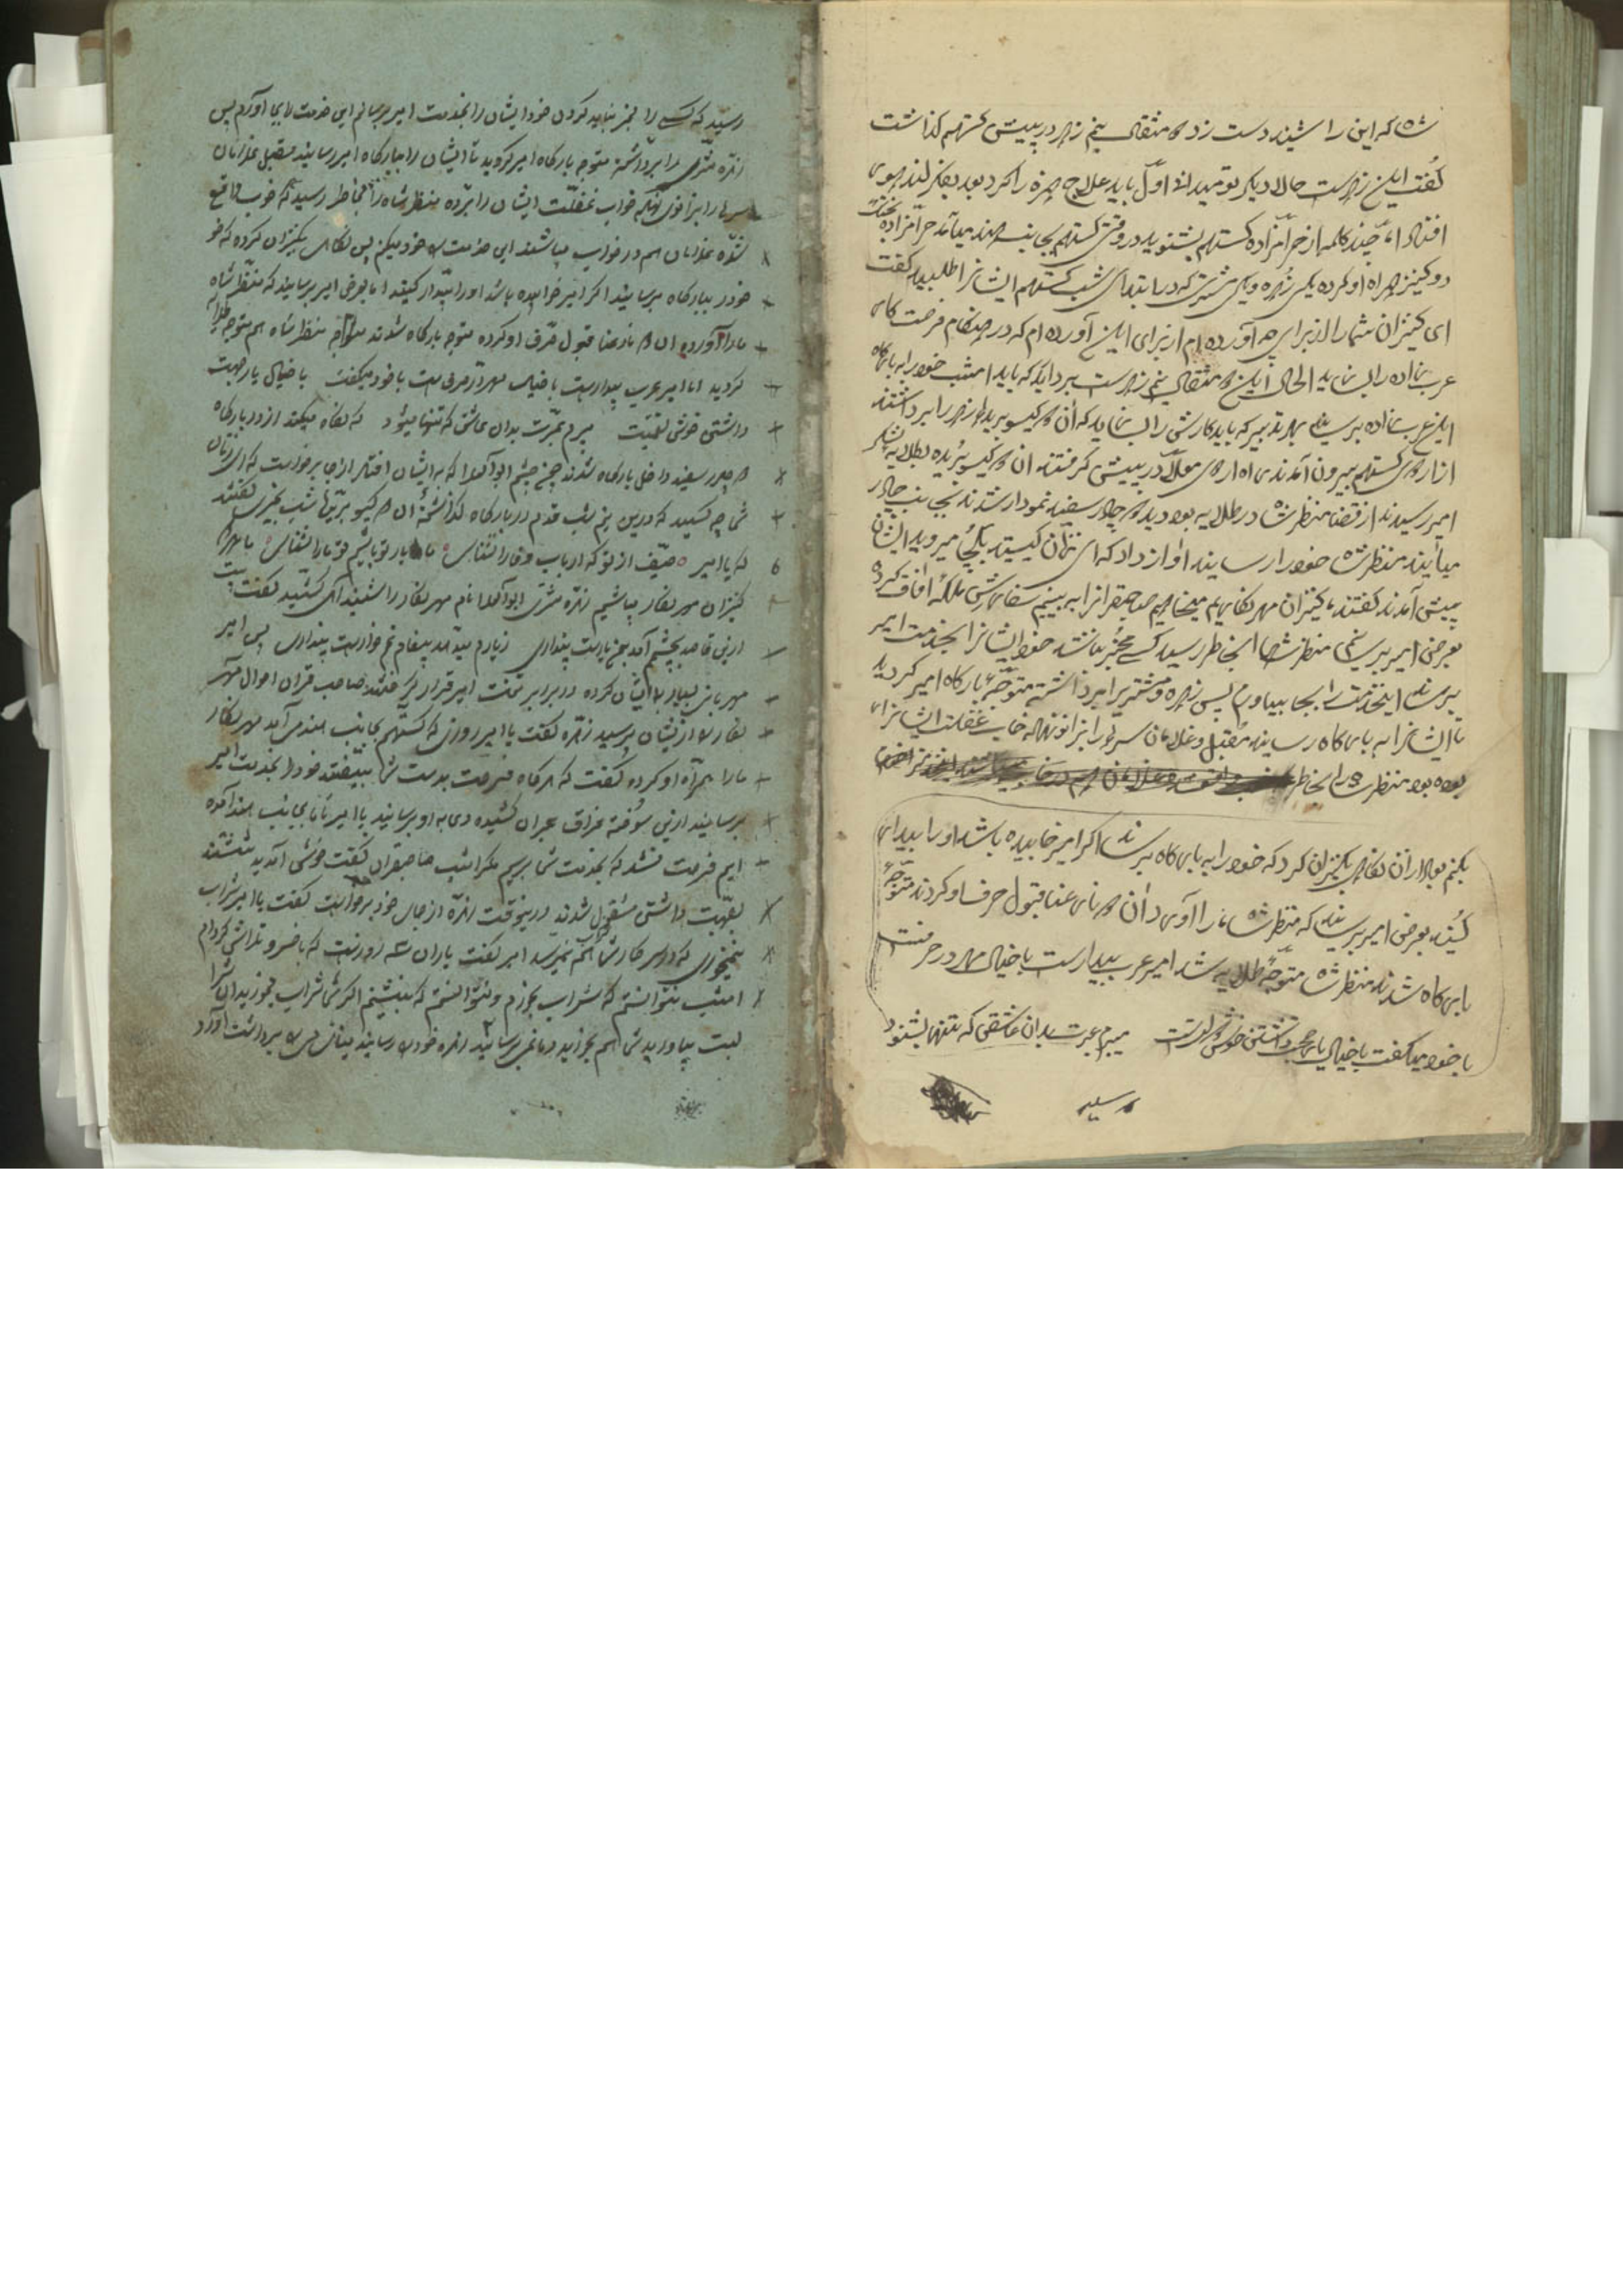 شاه که این را شنید دست زد و مثقالی نیم زهر در پیش گستهم گذاشت
گفت این زهرست حالا دیگر تو میدانی اول باید علاج حمزه را کرد بعد بفکر لندهور
افتاد اما چند کلمه از حرامزاده گستهم بشنوید در وقتی گستهم بجانب هند میآمد حرامزاده
دو کنیز همراه او کرده یکی زهره و یکی مشتری که در ابتدای شب گستهم ایشانرا طلبید گفت
ای کنیزان شما را از برای چه آورده‌ام از برای این آورده‌ام که در هنگام فرصت کار
عرب زاده را بسازید الحال این مثقال نیم زهرست بردارید که باید امشب خود را به بارگاه
این عرب زاده برسانید بهر تدبیر که باید کارش را بسازید که آن دو گیسو بریده زهر را برداشتند
از اردوی گستهم بیرون آمدند راه اردوی معلا در پیش گرفتند آن دو گیسو بریده بطلایه لشکر
امیر رسیدند از قضا منظرشاه در طلایه بود دید دو چادر سفید نمودار شدند بجانب چادر
میآیند منظرشاه خود را رسانید آواز داد که ای زنان کیستید بکجا میروید ایشان
پیش آمدند گفتند ما کنیزان مهرنگاریم میخواهیم صاحبقرانرا ببینیم سفارش ملکه آفاق
بعرض امیر برسانیم منظرشاه بخاطر رسید کسی مخبر نباشد خود ایشانرا بخدمت امیر
برساند این خدمت را بجا بیاورم پس زهره و مشتری را برداشته متوجه بارگاه امیر گردید
تا ایشانرا به بارگاه رسانید مقبل و غلامان سرها را بزانو نهاده خواب غفلت ایشانرا
بوده بود منظرشاه را بخاطر
بکنم بعد از آن نگاهی بکنیزان کرد که خود را به بارگاه برسانید اگر امیر خوابیده باشد او را بیدار
کنید بعرض امیر برسانید که منظرشاه ما را آورد آن دو نابرعنا قبول حرف او کردند متوجه
بارگاه شدند منظرشاه متوجه طلایه شد امیر عرب بیدارست با خیال مهر در حرفست
با خود میگفت با خیال یار صحبت داشتن خوش دولتست میبرم عبرت بدان عاشق که تنها بشنود
رسید که کسی را مخبر نباید کردن خود ایشان را بخدمت امیر برسانم این خدمت را بجا آورم پس
زهره مشتری را برداشته متوجه بارگاه امیر گردید تا ایشان را ببارگاه امیر رسانید مقبل غلامان
سرها را بزانوی نهاده خواب غفلت ایشان را برده منظرشاه را بخاطر رسید که خوب واقع
شده غلامان هم در خواب میباشند این خدمت را خود میکنم پس نگاهی بکنیزان کرده که خو
خود را ببارگاه برسانید اگر امیر خوابیده باشد او را بیدار کنید اما بعرض امیر برسانید که منظرشاه
ما را آورده آن دو نارعنا قبول حرف او کرده متوجه بارگاه شدند منظرشاه هم متوجه طلایه
گردید اما امیر عرب بیدارست با خیال مهر در حرفست با خود میگفت با خیال یار صحبت
داشتن خوش نعمتیست میبرم غیرت بدان عاشق که تنها میشود که نگاه میکند از در بارگاه
دو چادر سفید داخل بارگاه شدند چون چشم ابوالعلا که به ایشان افتاد از جا برخواست که ای زنان
شما چه کسید که درین نیم شب قدم در بارگاه گذاشته‌اید آن دو گیسو بریدها شب بخیری گفتند
که یا امیر حیف از تو که ارباب وفا را نشناسی ما یار تو باشیم تو ما را نشناسی ما هر دو
کنیزان مهرنگار میباشیم زهره مشتری ابوالعلا نام مهرنگار را شنید آهی کشید گفت بیت
از این قاصد بچشم آمد بجز یارست پنداری ز یارم میدهد پیغام غم خوارست پنداری پس امیر
مهربانی بسیار با ایشان کرده در برابر تخت امیر قرار گرفتند صاحب قران احوال مهر
نگار را از ایشان پرسید زهره گفت یا امیر روزی که گستهم بجانب هند می آمد مهرنگار
ما را همراه او کرده گفت که هرگاه فرصت بدست شما بیفتد خود را بخدمت امیر
برسانید ازین سوخته فراق هجران کشیده دعا به او برسانید یا امیر تا بجانب هند آمده
ایم فرصت نشد که بخدمت شما برسیم مگر امشب صاحبقران گفت خوش آمدید نشستند
بصحبت داشتن مشغول شدند درینوقت زهره از جای خود برخواست گفت یا امیر شراب
نمیخوری که در سر کار شما بهم نمیرسد امیر گفت یاران سه روزست که با خسرو تلاش کرده‌ام
امشب نتوانستم که شراب بخورم و نتوانستم که بنشینم اگر شما شراب میخورید آن
بیاورید شما هم بخورید دماغی برسانید زهره خود را رسانید برداشت آورد